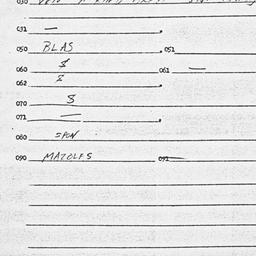 031 —
050 BLAS 051
060 $ 061 —
062 $
070 $
071 —
080 SPON
090 MAZOLES 091 —